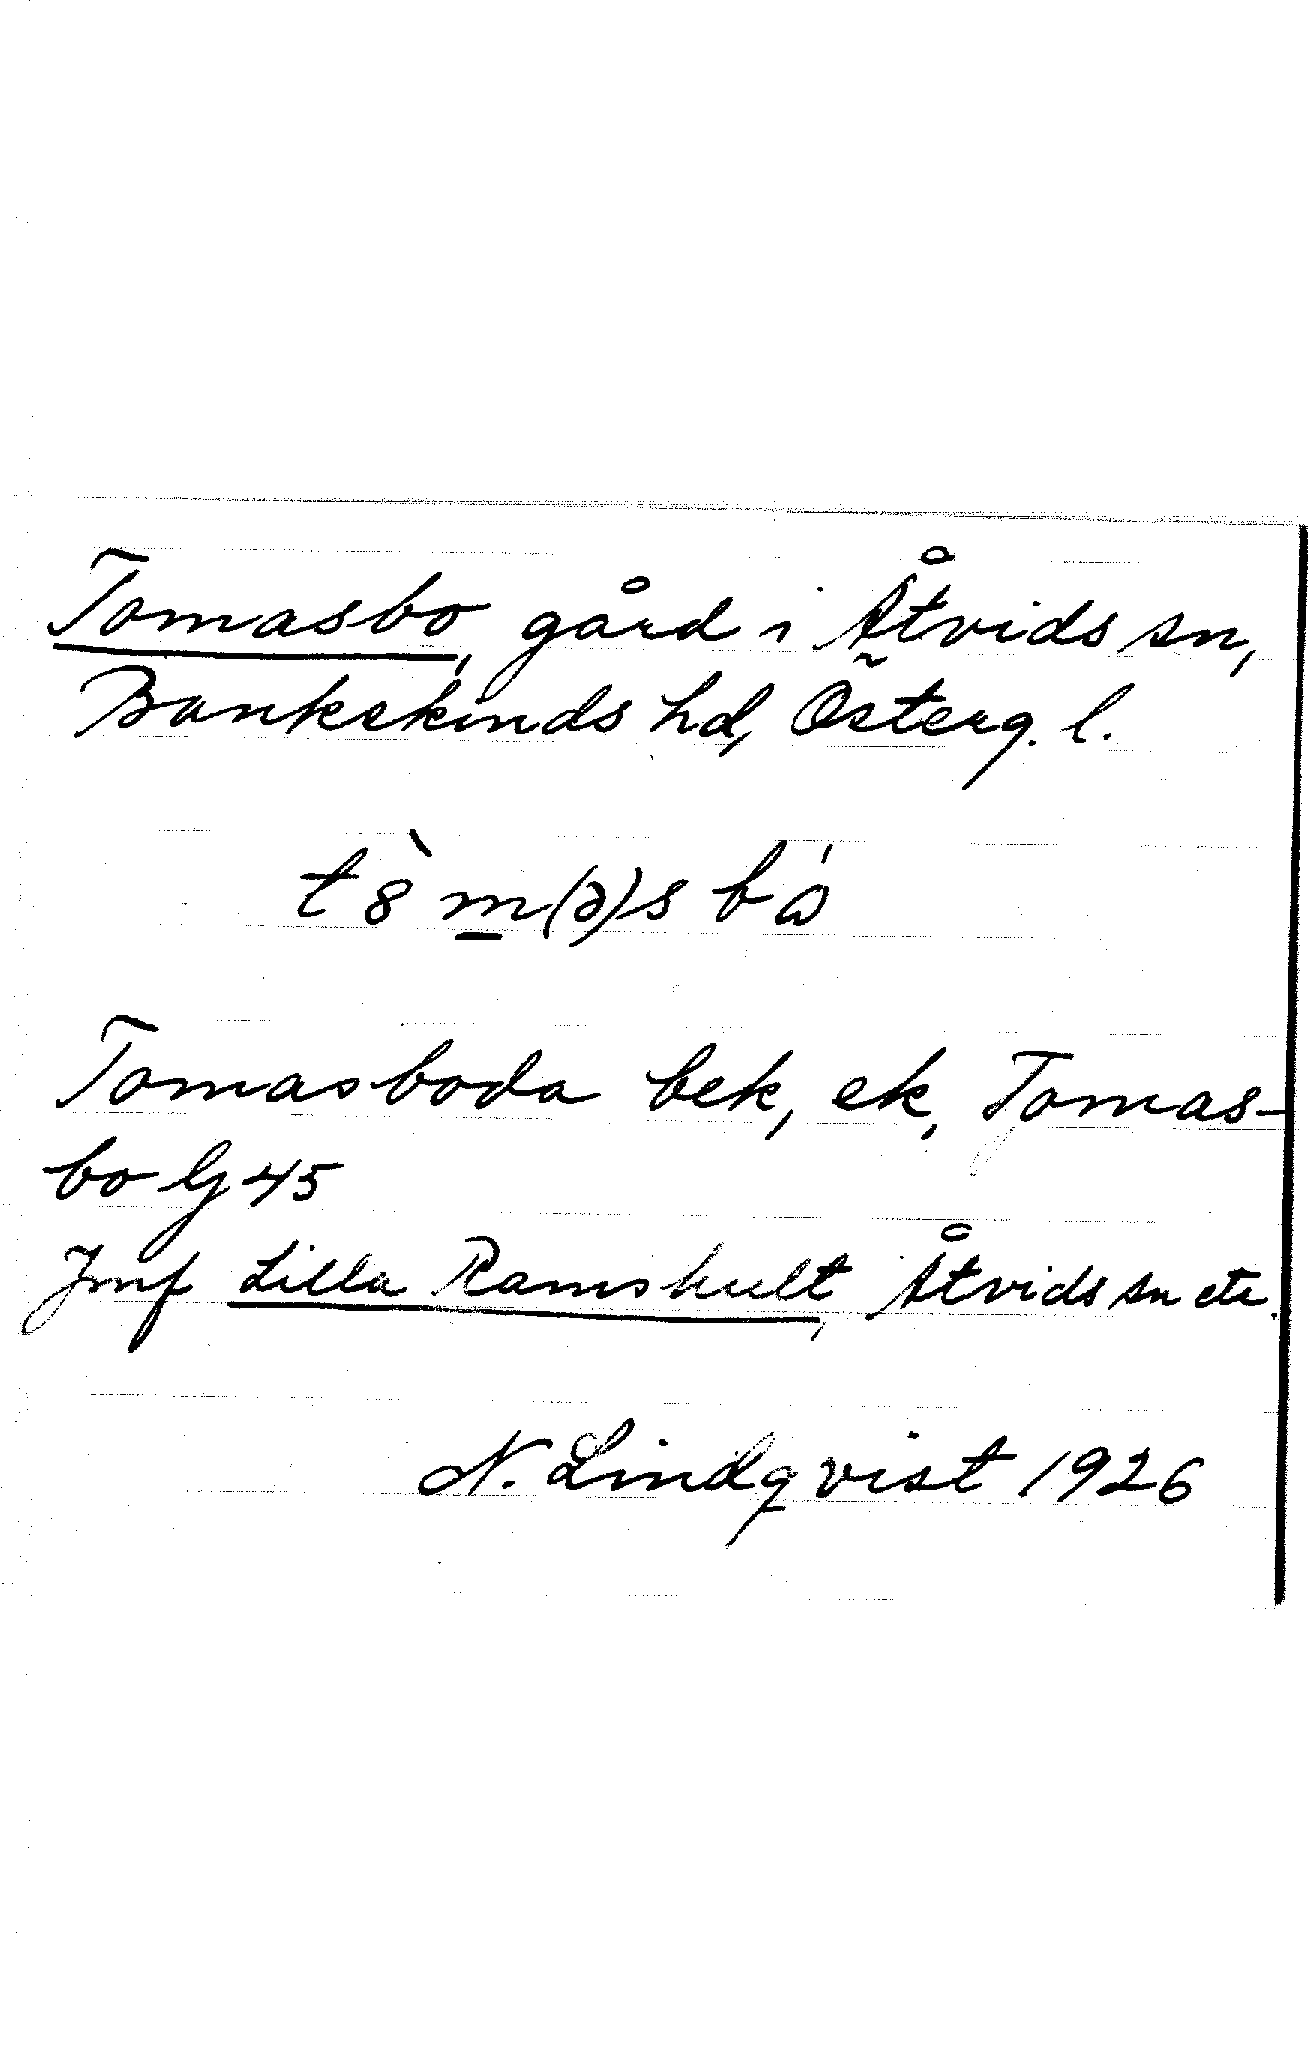 Tomasbo, gård i Åtvids sn,
Bankekinds hd, Österg. l.
t8̀m(ə)sbɷ́
Tomasboda bek, ek, Tomas-
bo G 45
Jmf Lilla Ramshult, Åtvids sn etc.
N. Lindqvist 1926